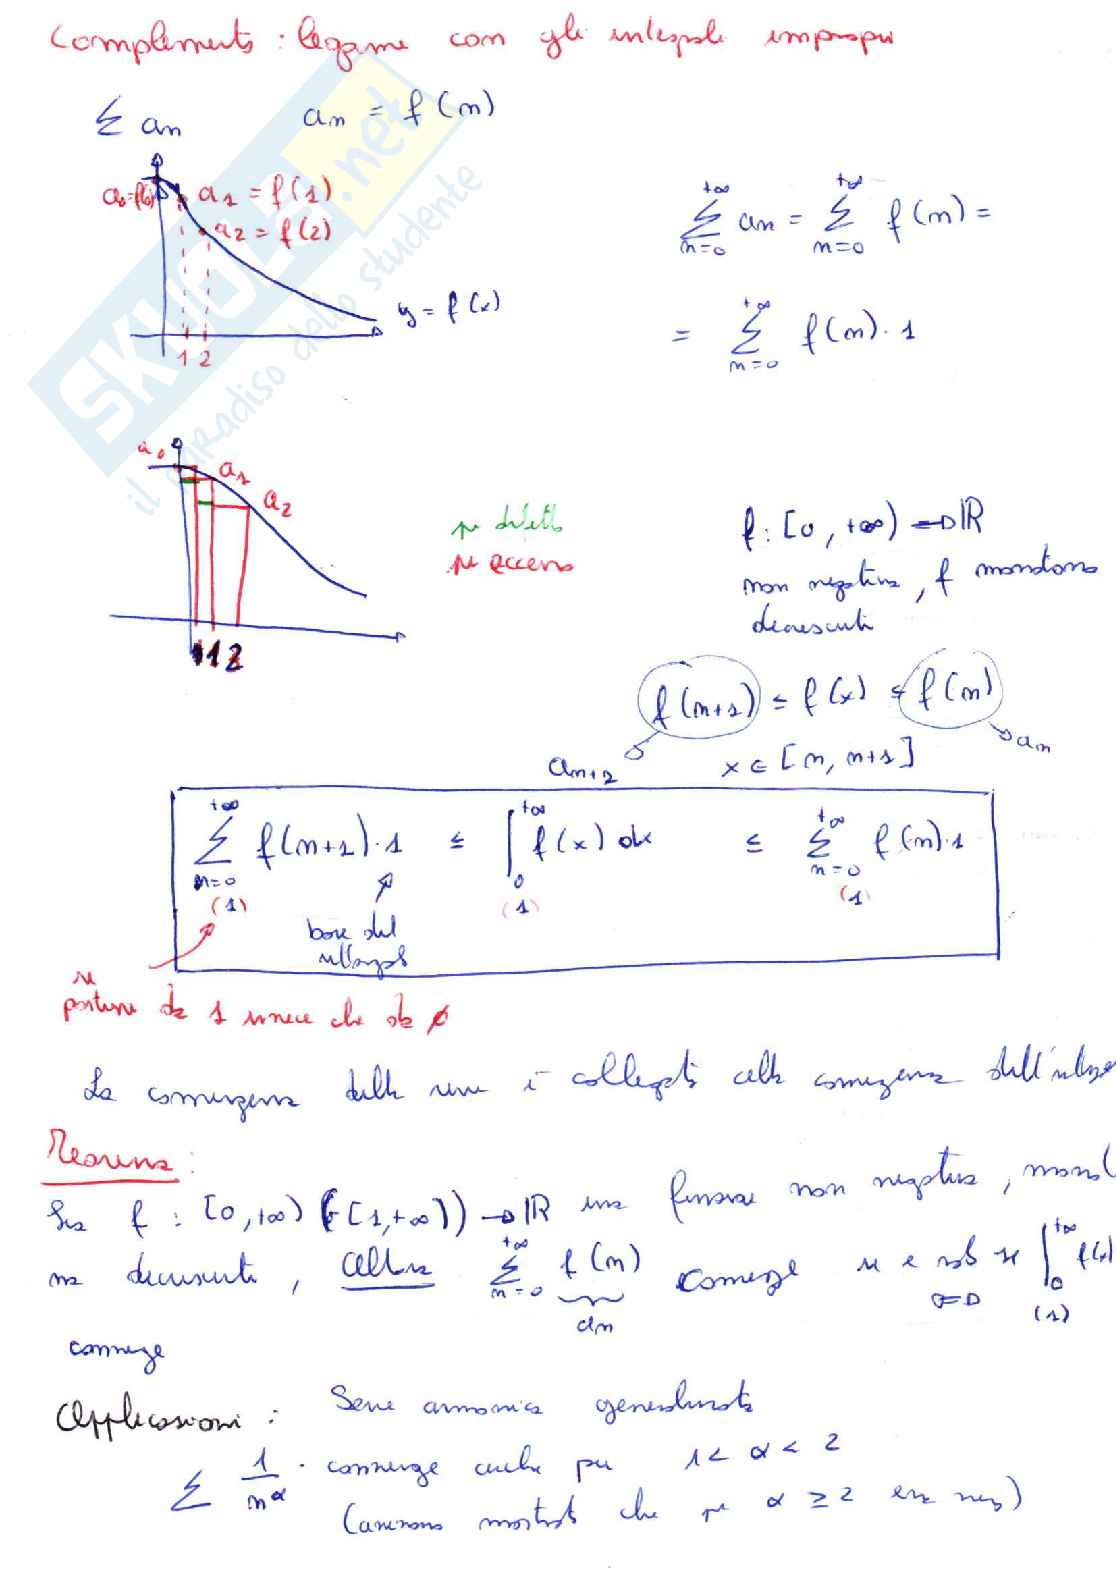 Complemento : legame con gli integrali impropri
Σ an   an = f(n)
a0=f(0)   a1 = f(1)
a2 = f(2)
y = f(x)
1 2
+∞ Σ n=0 an = +∞ Σ n=0 f(n) =
= +∞ Σ n=0 f(n) · 1
SKUOLA.net
il paradiso dello studente
a0   a1
a2
1 1 2
per difetto
per eccesso
f : [0, +∞) → ℝ
non negativa, f monotona
decrescente
f(n+1) ≤ f(x) ≤ f(n)
an+1   x ∈ [n, n+1]   an
+∞ Σ n=0 f(n+1)·1 ≤ ∫ 0 +∞ f(x) dx ≤ +∞ Σ n=0 f(n)·1
(1)   (1)   (1)
base del
rettangolo
se
partiamo da 1 invece che da 0
La convergenza della serie è collegata alla convergenza dell'integr
Teorema :
Sia f : [0,+∞) ([1,+∞)) → ℝ una funzione non negativa, monot
na decrescente, allora +∞ Σ n=0 f(n) converge se e solo se ∫ 0 +∞ f(x)
an   ⇔   (1)
converge
Applicazioni : Serie armonica generalizzata
Σ 1/n^α · converge anche per 1 < α < 2
(avevamo mostrato che per α ≥ 2 era vero)